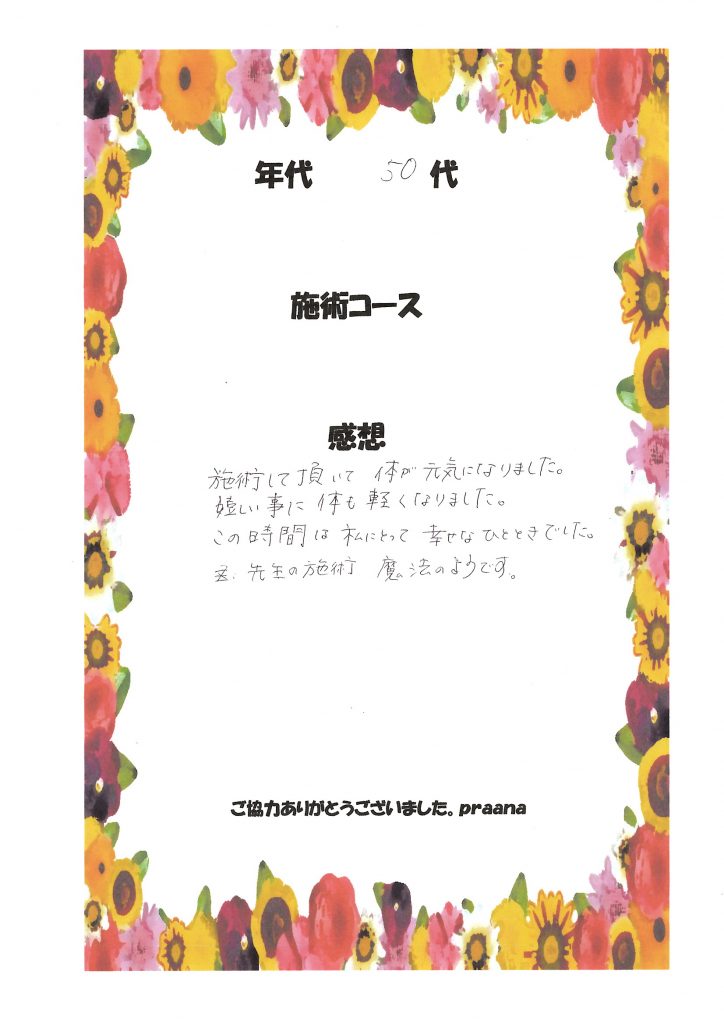 年代 50 代
施術コース
感想
施術して頂いて 体が元気になりました。
嬉しい事に 体も軽くなりました。
この時間は 私にとって 幸せなひとときでした。
先生の施術 魔法のようです。
ご協力ありがとうございました。praana